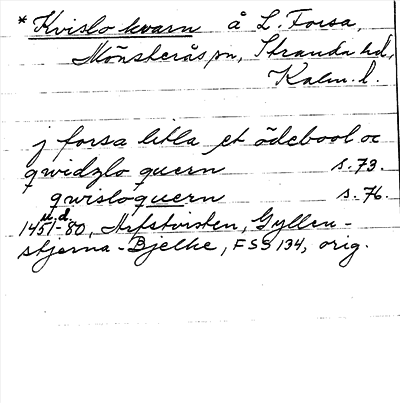 * Kvislo kvarn å L. Forsa,
Mönsterås sn, Stranda hd,
Kalm. l.
j forsa litla et ödebool oc
qwidzlo quern s. 73.
qwisloquern s. 76.
u.d.
1451-80, Avstvisten, Gyllen-
stjerna-Bjelke, FSS 134, orig.